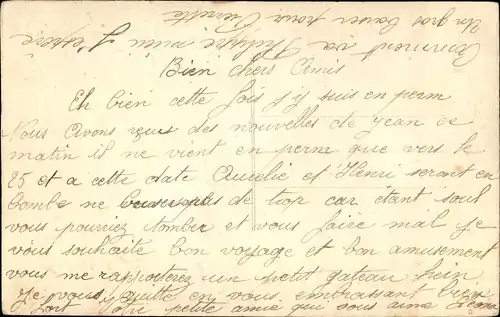 Bien chers Amis
Eh bien cette fois j'y suis en perm
Nous avons reçus des nouvelles de Jean ce
matin il ne vient en perm que vers le
25 et a cette date Aurelie et Henri seront en
bombe ne buvez pas de trop car étant soul
vous pourriez tomber et vous faire mal je
vous souhaite bon voyage et bon amusement
vous me rapporterez un petit gateau hein
Je vous quitte en vous embrassant bien
fort votre petite amie qui vous aime
Comment va Philippe mieu j'espère
Un gros baiser pour